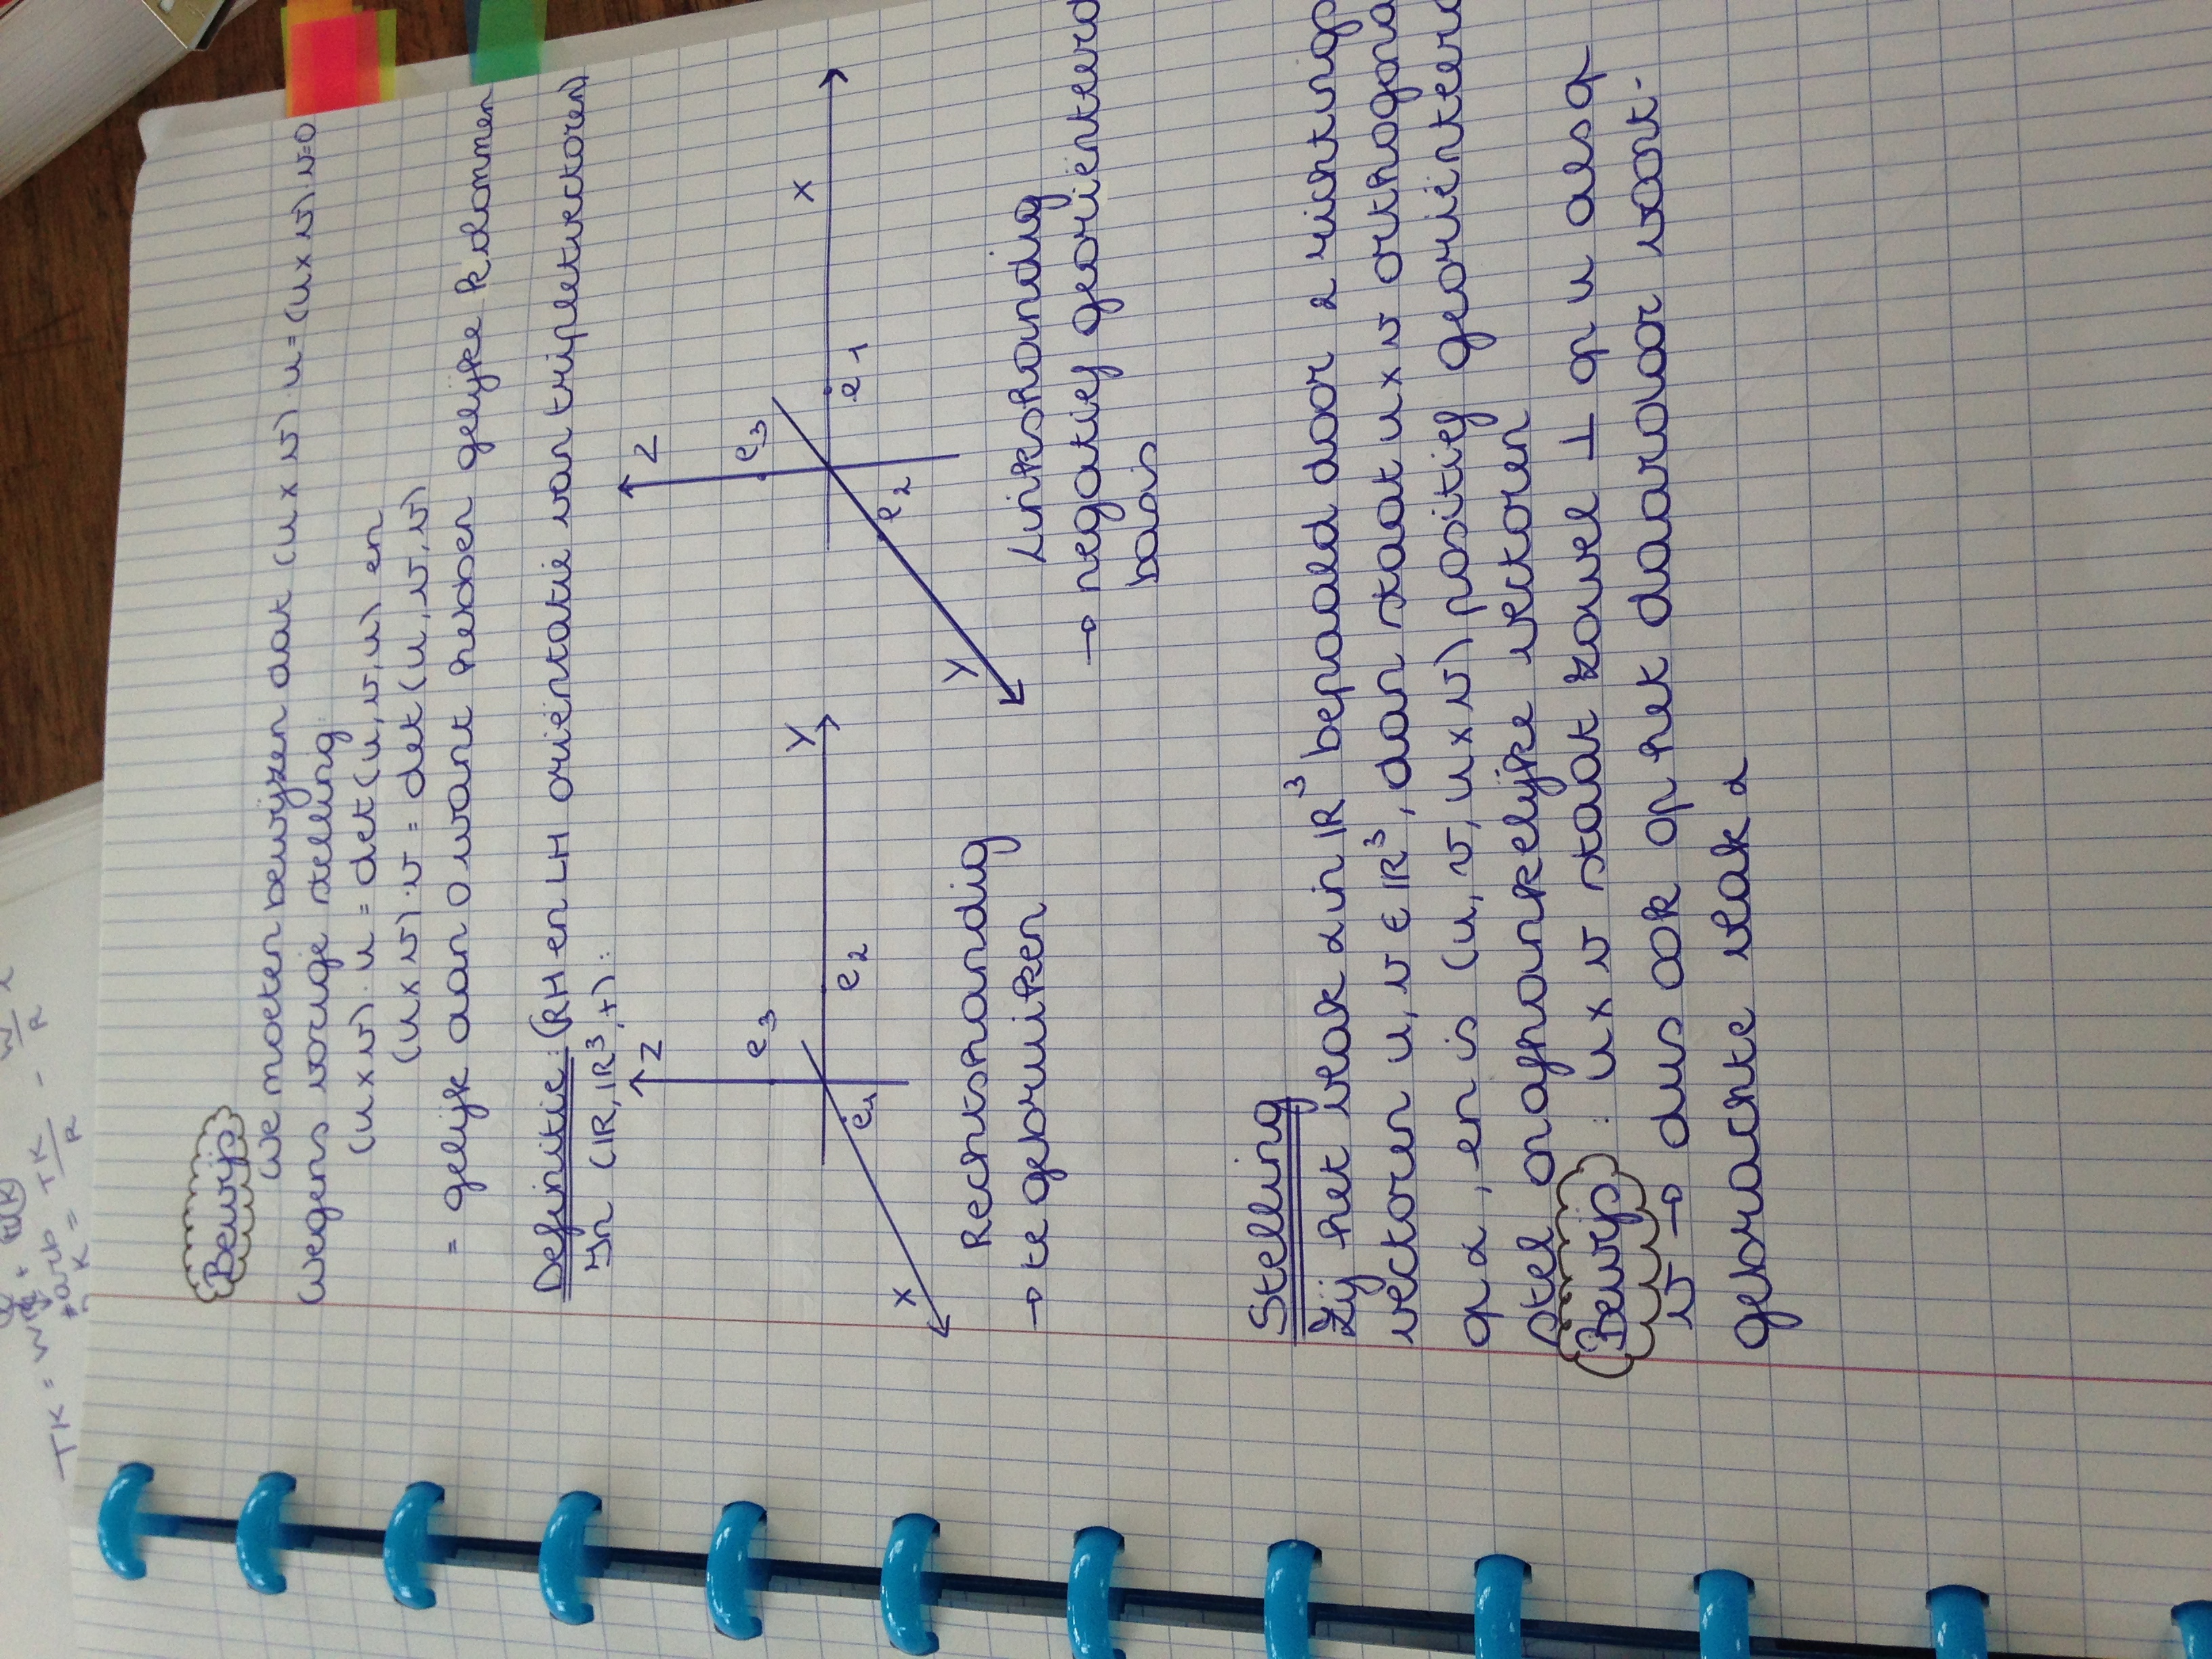 Bewijs
We moeten bewijzen dat (u x v) . u = (u x v) . v = 0
Wegens vorige stelling:
(u x v) . u = det (u, v, u) en
(u x v) . v = det (u, v, v)
= gelijk aan 0 want hebben gelijke kolommen
Definitie: (RH en LH oriëntatie van tripletvectoren)
In (IR, IR³, +):
Z
e3
e2
Y
e1
X
Rechtshandig
→ te gebruiken
Z
e3
e1
X
e2
Y
Linkshandig
→ negatief georiënteerd
basis
Stelling
Zij het vlak α in IR³ bepaald door 2 richtings
vectoren u, v ∈ IR³, dan staat u x v orthogona
op α, en is (u, v, u x v) positief georiënteerd
Stel onafhankelijke vectoren
Bewijs: u x v staat zowel ⊥ op u als op
v → dus ook op het daardoor voort-
gebrachte vlak α